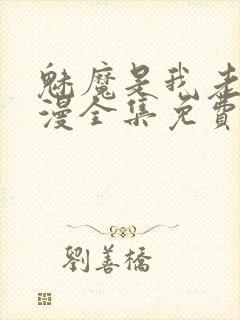 魅魔是我老
漫全集免費
劉善橋